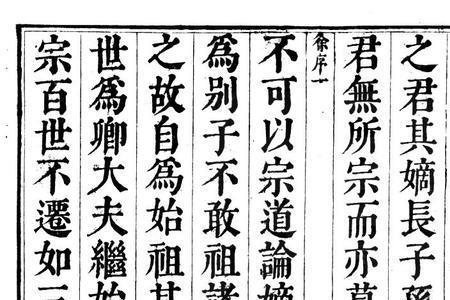 之君其嫡長子孫
君無所宗而亦莫
徐序一
不可以宗道論嫡
為别子不敢祖諸
之故自為始祖其
世為卿大夫繼始
宗百世不遷如